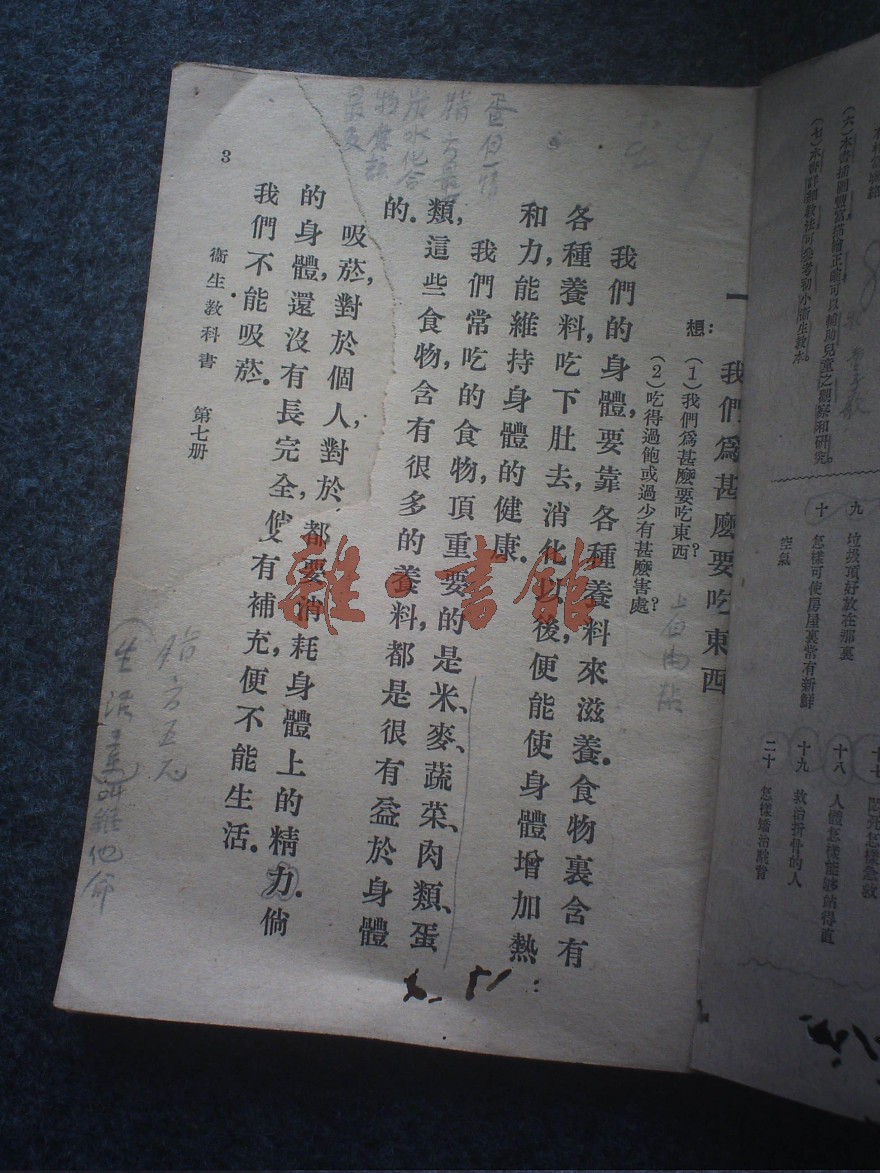 (六)本書插圖豐富描繪正確可以輔助兒童之觀察和研究。
(七)本書詳細教法可參考初小衛生教本。
九 垃圾頂好放在那裏
十 怎樣可使房屋裏常有新鮮
空氣
十八 人體怎樣能夠站得直
十九 救治折骨的人
二十 怎樣矯治駝背
一 我們為甚麼要吃東西
想:(1)我們為甚麼要吃東西?
(2)吃得過飽或過少有甚麼害處?
我們的身體,要靠各種養料來滋養.食物裏含有
各種養料,吃下肚去,消化以後,便能使身體增加熱
和力,能維持身體的健康.
我們常吃的食物,頂重要的是米、麥、蔬菜、肉類、蛋
類,這些食物,含有很多的養料,都是很有益於身體
的.
吸菸,對於個人,對於 都要消耗身體上的精力.倘
的身體,還沒有長完全,
有補充,便不能生活.
我們不能吸菸.
衞生教科書 第七册
3
蛋白
炭水化合
脂方五元
生活
維他命
雜·書館